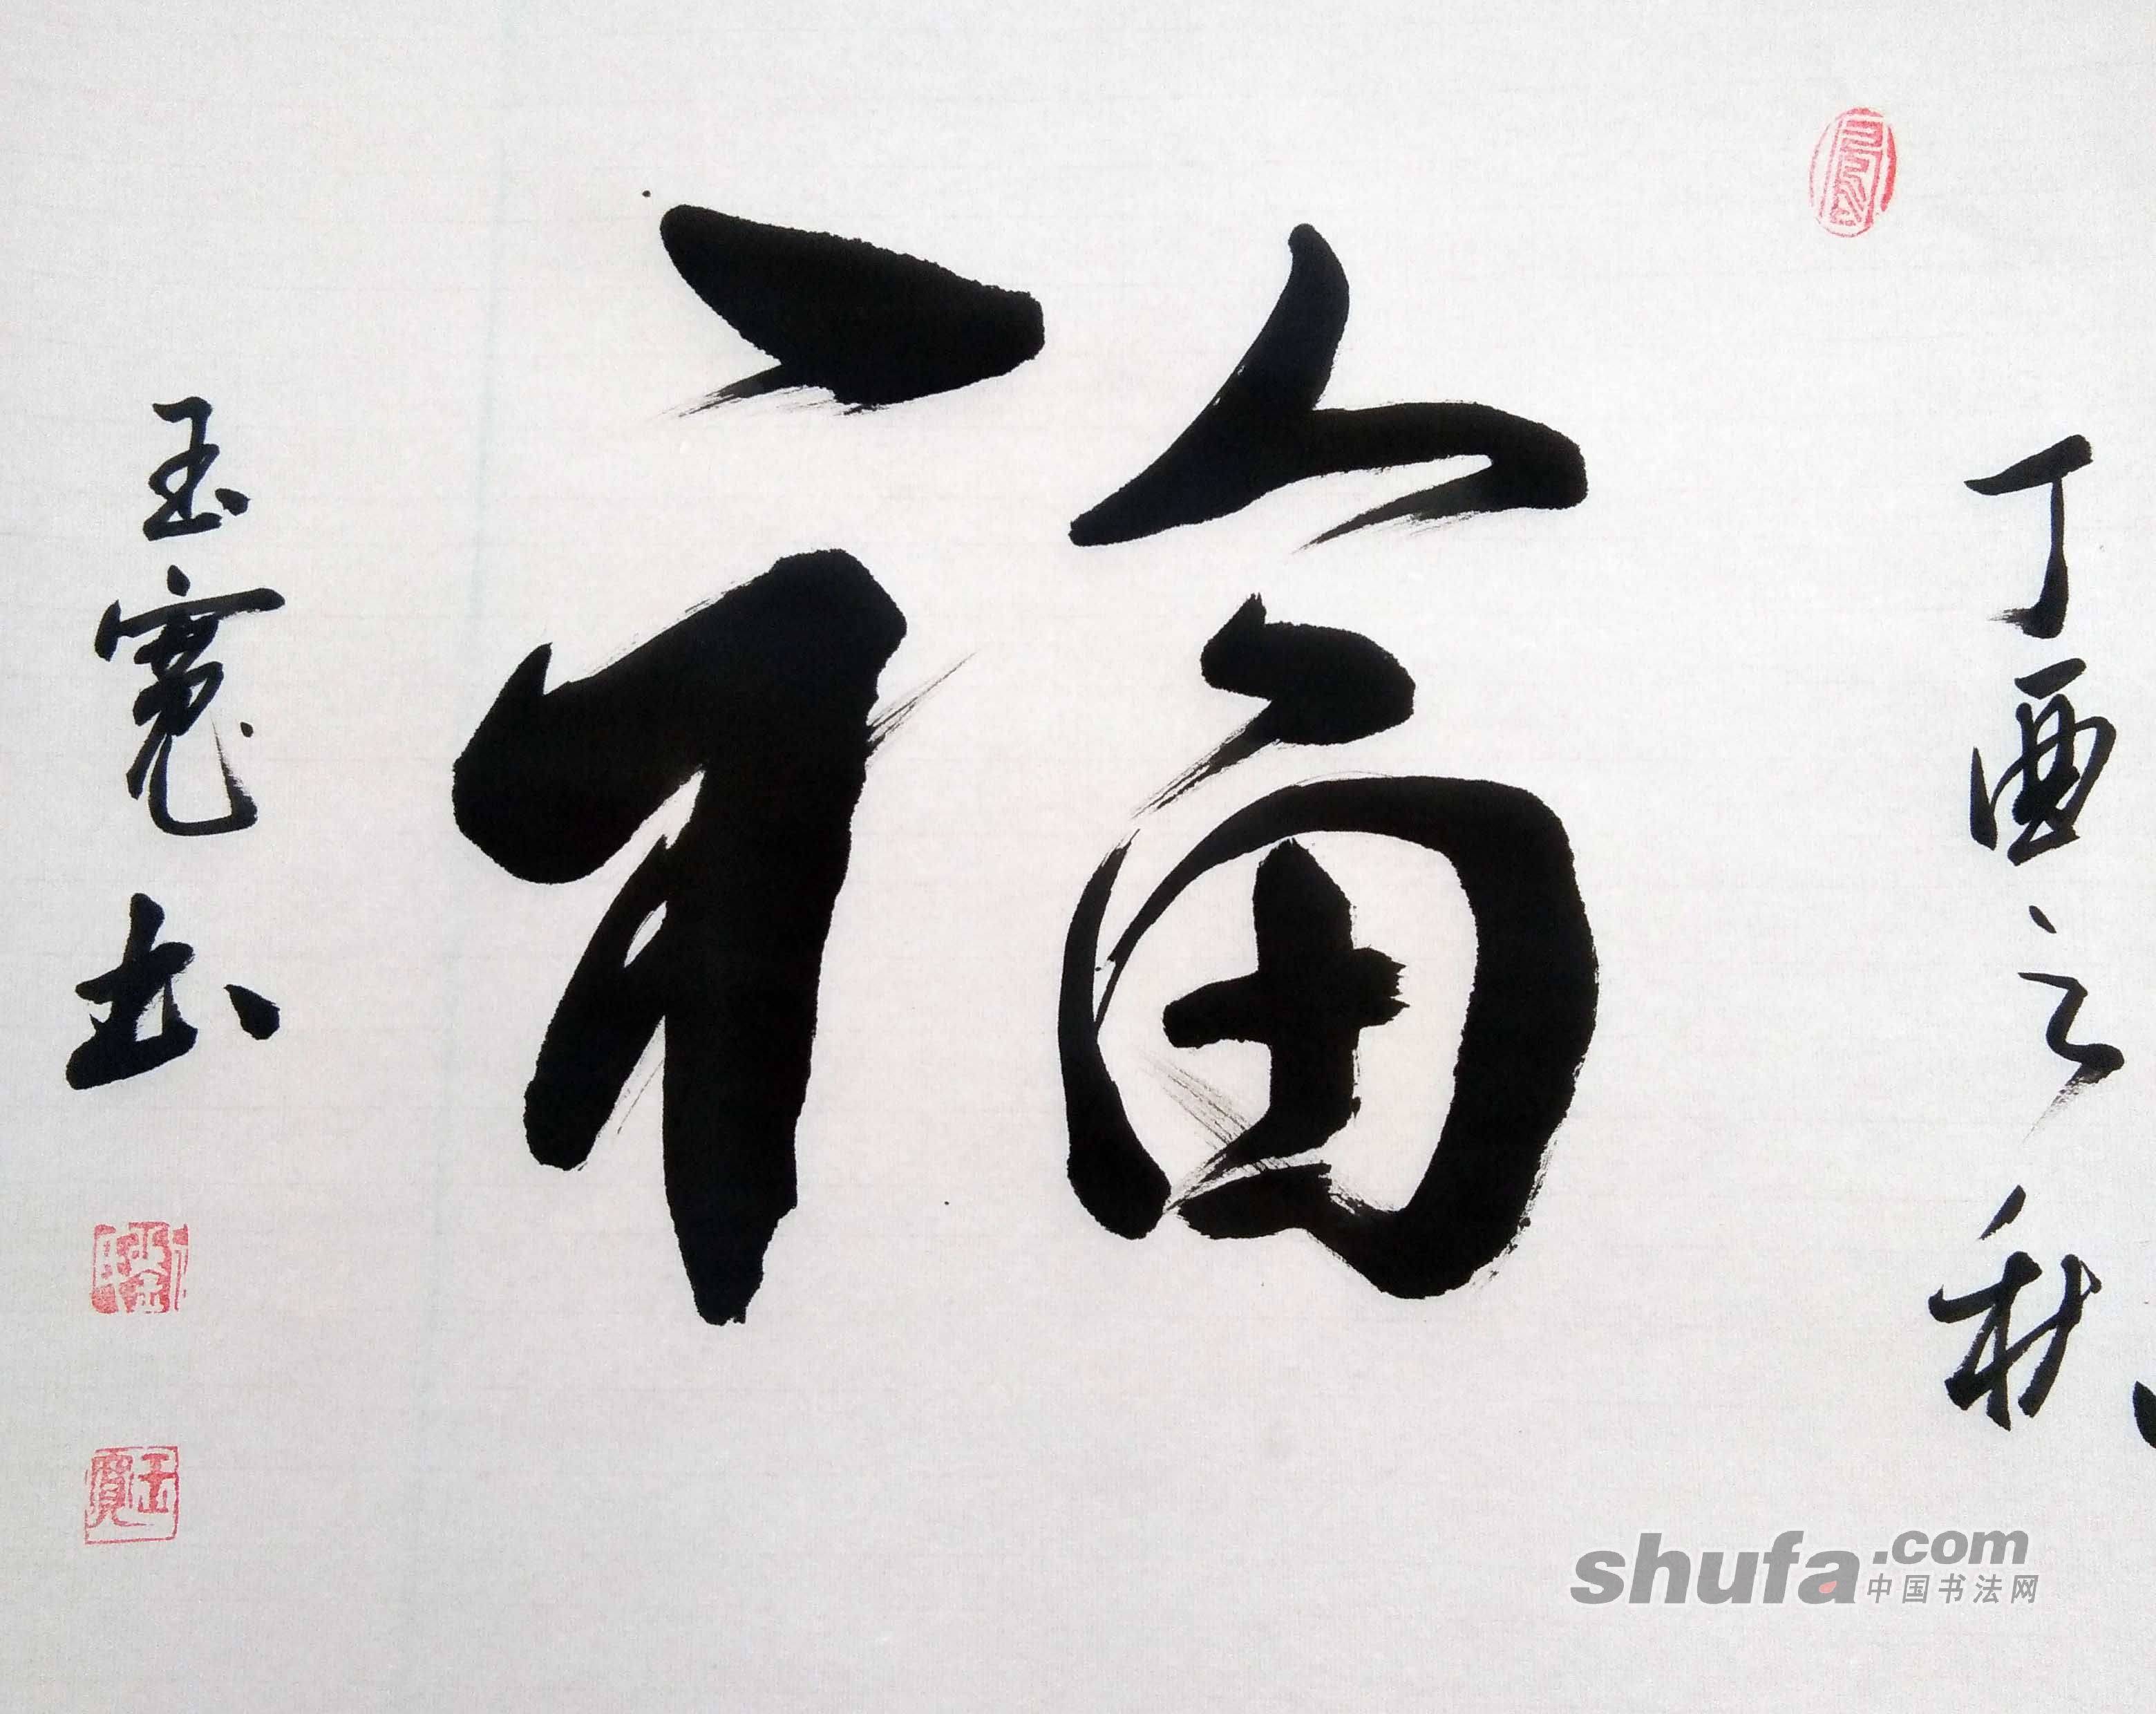 丁酉之秋
福
玉寬书
玉寬
shufa.com
中国书法网